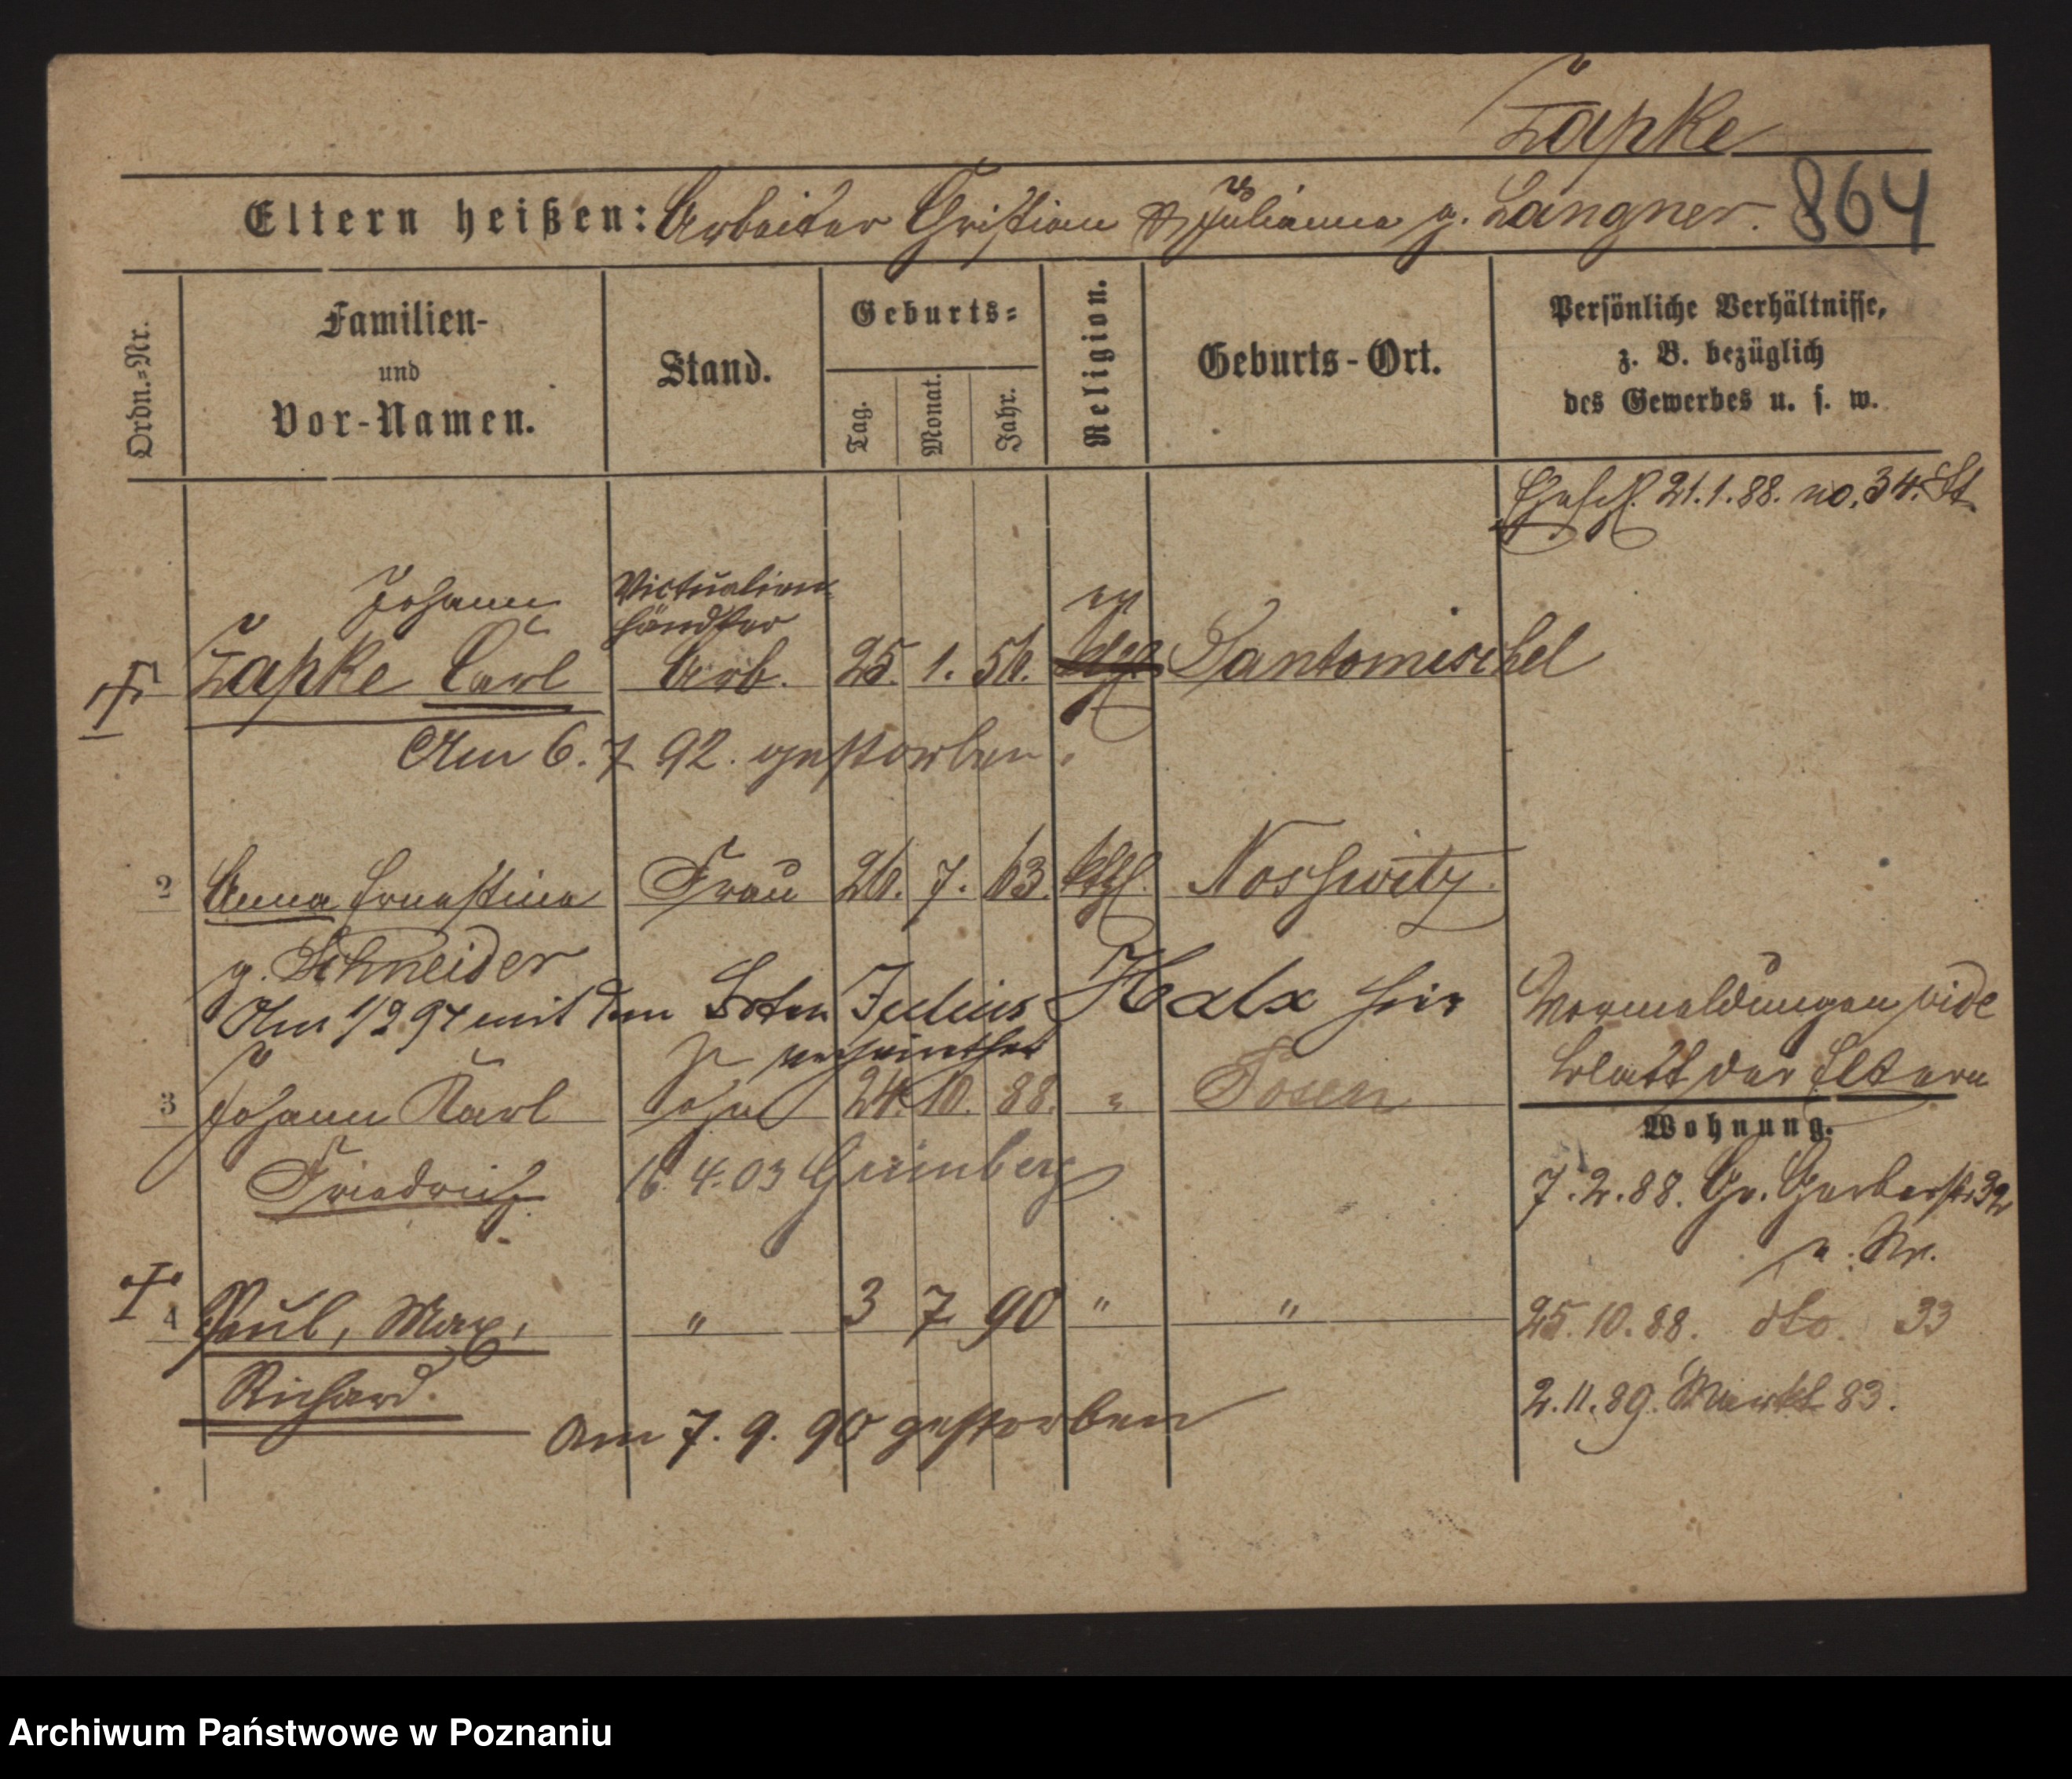 Zapke
864
Eltern heißen: Arbeiter Christian u Julianna g. Langner.
Ordn.=Nr.
Familien-
und
Vor-Namen.
Stand.
Geburts=
Tag.
Monat.
Jahr.
Religion.
Geburts-Ort.
Persönliche Verhältnisse,
z. B. bezüglich
des Gewerbes u. s. w.
Ehesch. 21.1.88. no. 34. St
Johann Victualien-
händler ev
Zapke Carl Arb. 25. 1. 56. Santomischel
Am 6. 7 92. gestorben.
2 Anna Ernestine Frau 26. 7. 63. kth. Nosswitz
g. Schneider
Am 1/2 94 mit dem Julius hier
verheirathet
Vormeldungen vide
Blatt der Eltern
3 Johann Karl Sohn 24. 10. 88. " Posen
Friedrich 16. 4. 03 Grünberg
Wohnung.
7.2.88. Gr. Gerberstr. 32
4 Paul, Max, " 3 7 90 " "
Richard.
Am 7. 9. 90 gestorben
25.10.88. dto. 33
2.11.89. Markt 83.
Archiwum Państwowe w Poznaniu